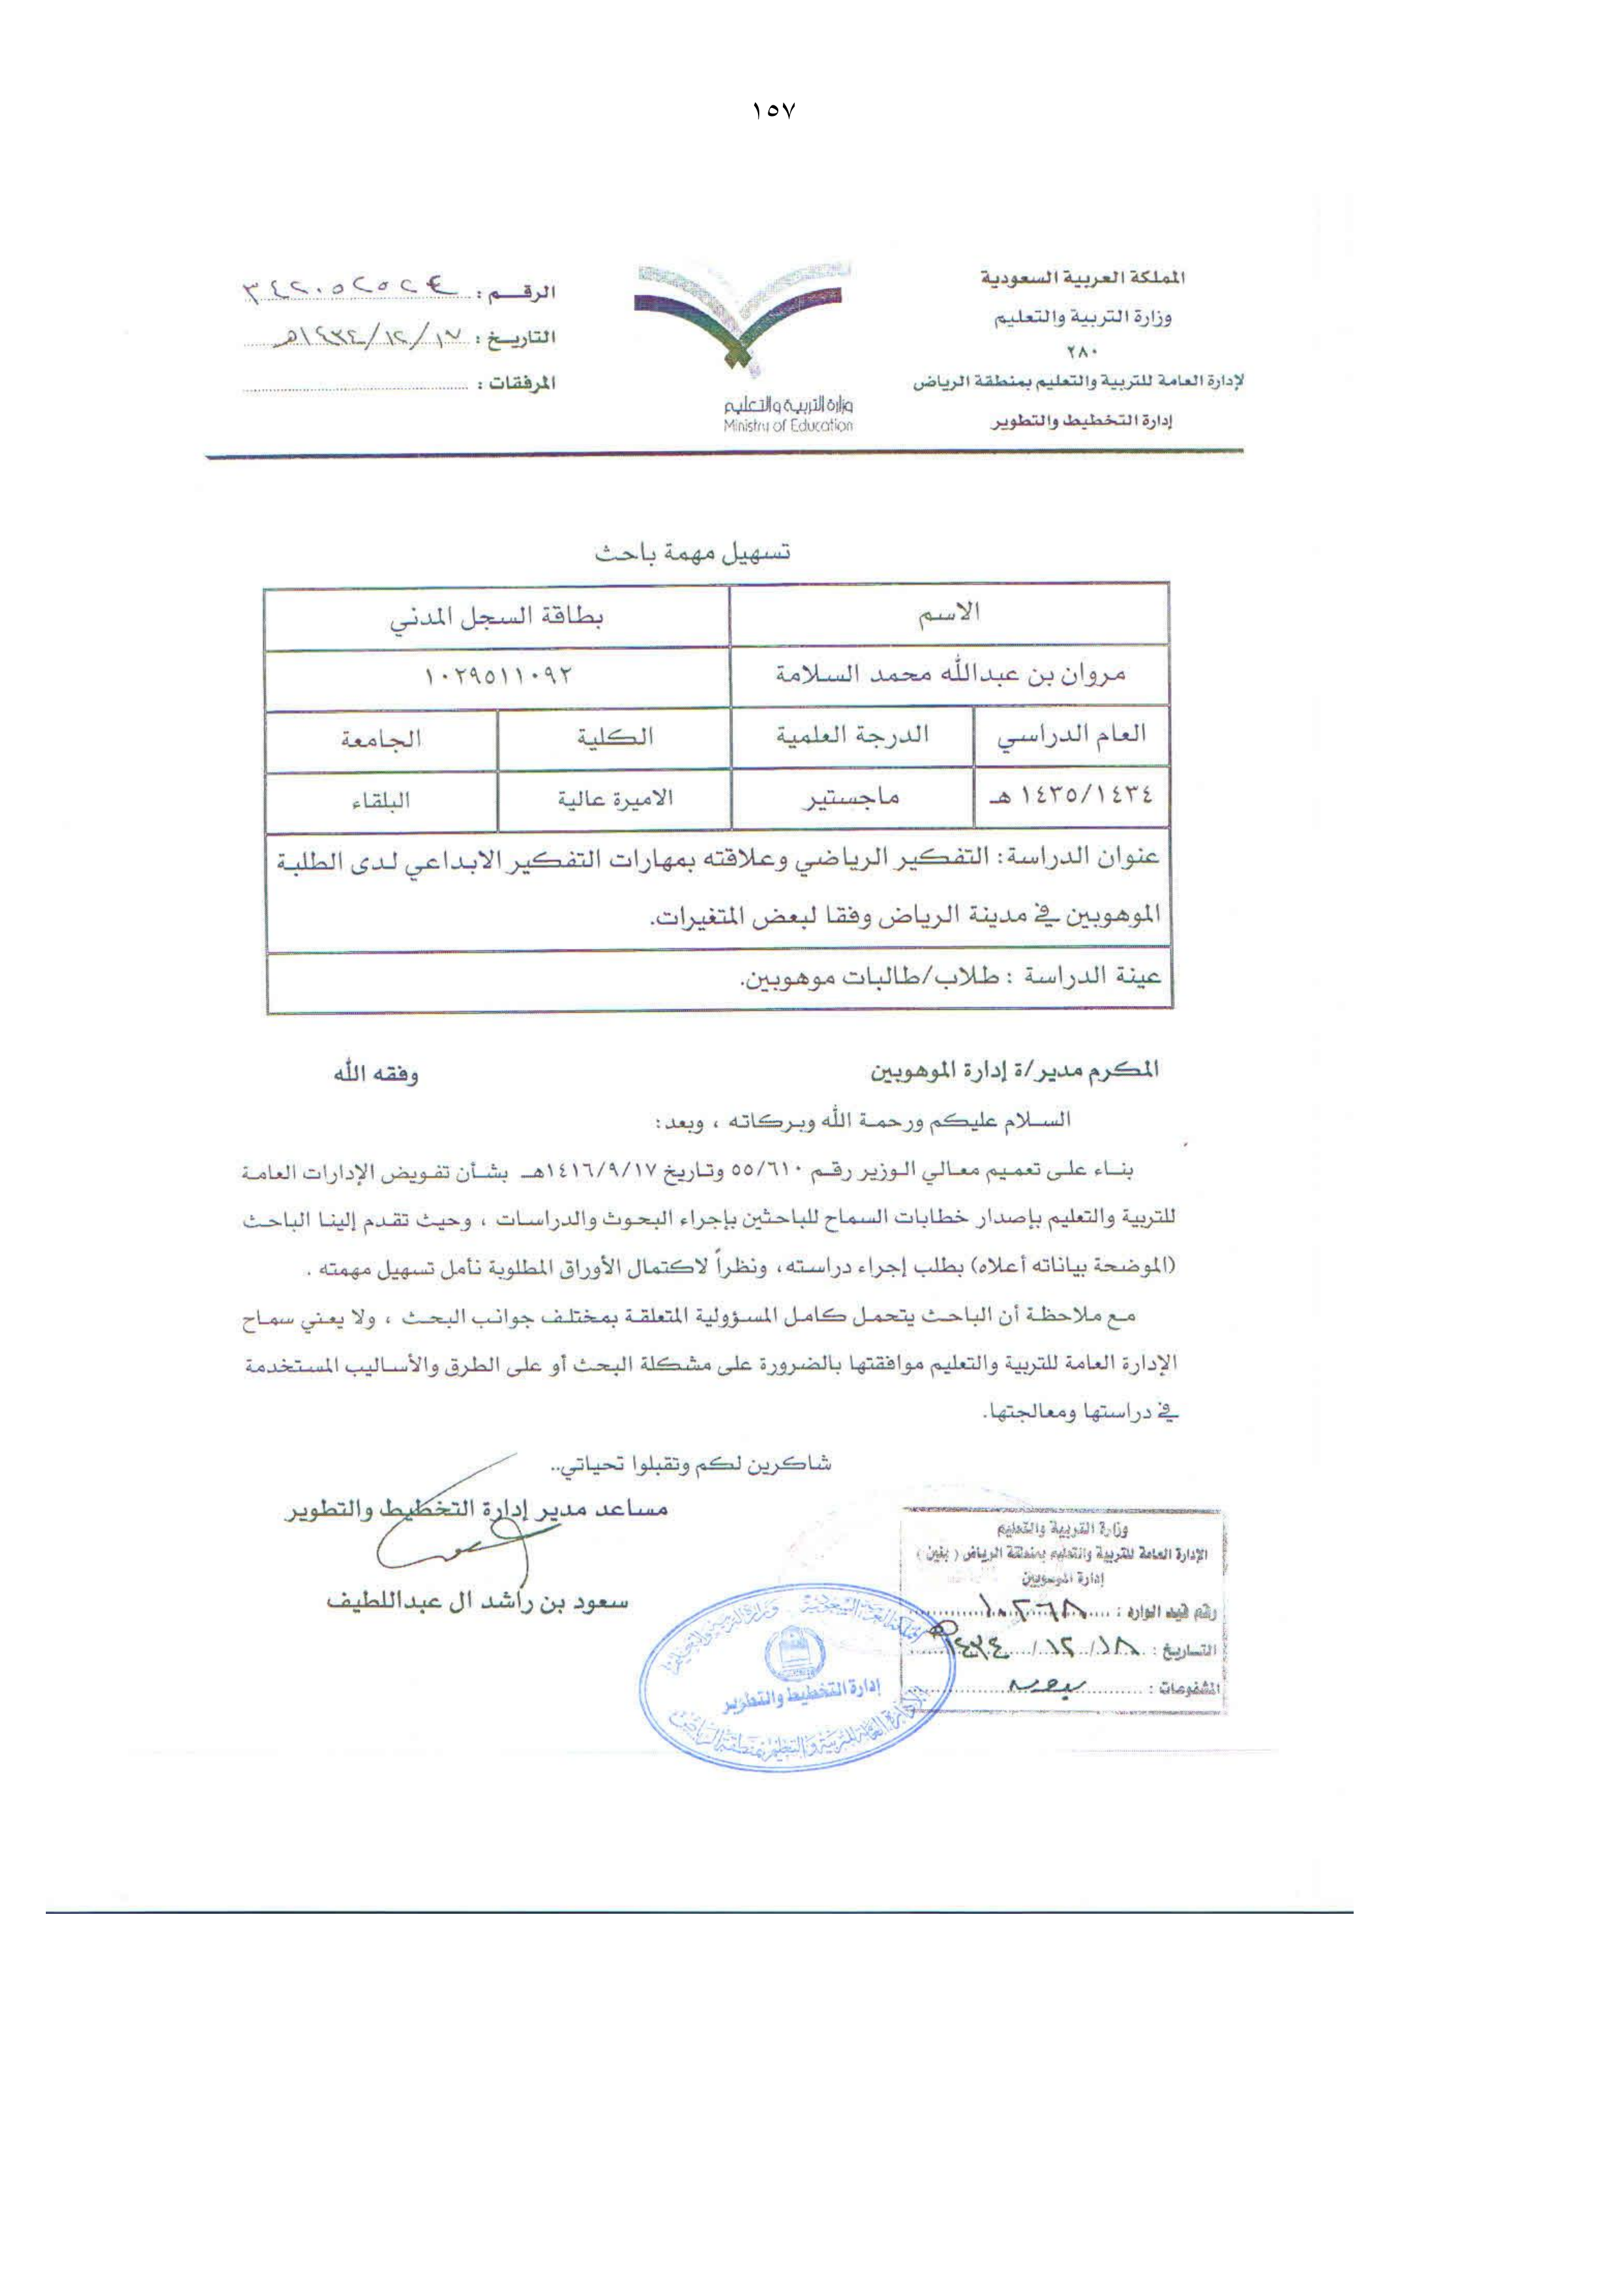 ١٥٧
المملكة العربية السعودية
وزارة التربية والتعليم
٢٨٠
لإدارة العامة للتربية والتعليم بمنطقة الرياض
إدارة التخطيط والتطوير
وزارة التربية والتعليم
Ministry of Education
الرقـــم : ٣٤٢٠٥٢٥٢٤
التاريـخ : ١٤٣٤/١٢/١٧هـ
المرفقات :
تسهيل مهمة باحث
الاسم بطاقة السجل المدني
مروان بن عبدالله محمد السلامة ١٠٢٩٥١١٠٩٢
العام الدراسي الدرجة العلمية الكلية الجامعة
١٤٣٥/١٤٣٤ هـ ماجستير الاميرة عالية البلقاء
عنوان الدراسة: التفكير الرياضي وعلاقته بمهارات التفكير الابداعي لدى الطلبة
الموهوبين في مدينة الرياض وفقا لبعض المتغيرات.
عينة الدراسة : طلاب/طالبات موهوبين.
المكرم مدير/ة إدارة الموهوبين وفقه الله
السلام عليكم ورحمة الله وبركاته ، وبعد:
بناء على تعميم معالي الوزير رقم ٥٥/٦١٠ وتاريخ ١٤١٦/٩/١٧هـ بشأن تفويض الإدارات العامة
للتربية والتعليم بإصدار خطابات السماح للباحثين بإجراء البحوث والدراسات ، وحيث تقدم إلينا الباحث
(الموضحة بياناته أعلاه) بطلب إجراء دراسته، ونظراً لاكتمال الأوراق المطلوبة نأمل تسهيل مهمته .
مع ملاحظة أن الباحث يتحمل كامل المسؤولية المتعلقة بمختلف جوانب البحث ، ولا يعني سماح
الإدارة العامة للتربية والتعليم موافقتها بالضرورة على مشكلة البحث أو على الطرق والأساليب المستخدمة
في دراستها ومعالجتها.
شاكرين لكم وتقبلوا تحياتي..
مساعد مدير إدارة التخطيط والتطوير
سعود بن راشد ال عبداللطيف
وزارة التربية والتعليم
الإدارة العامة للتربية والتعليم بمنطقة الرياض ( بنين )
إدارة الموهوبين
رقم قيد الوارد : ١٠٢٦٨
التـاريخ : ١٤٣٤/١٢/١٨هـ
المشفوعات :
المملكة العربية السعودية - وزارة التربية والتعليم
إدارة التخطيط والتطوير
الإدارة العامة للتربية والتعليم بمنطقة الرياض